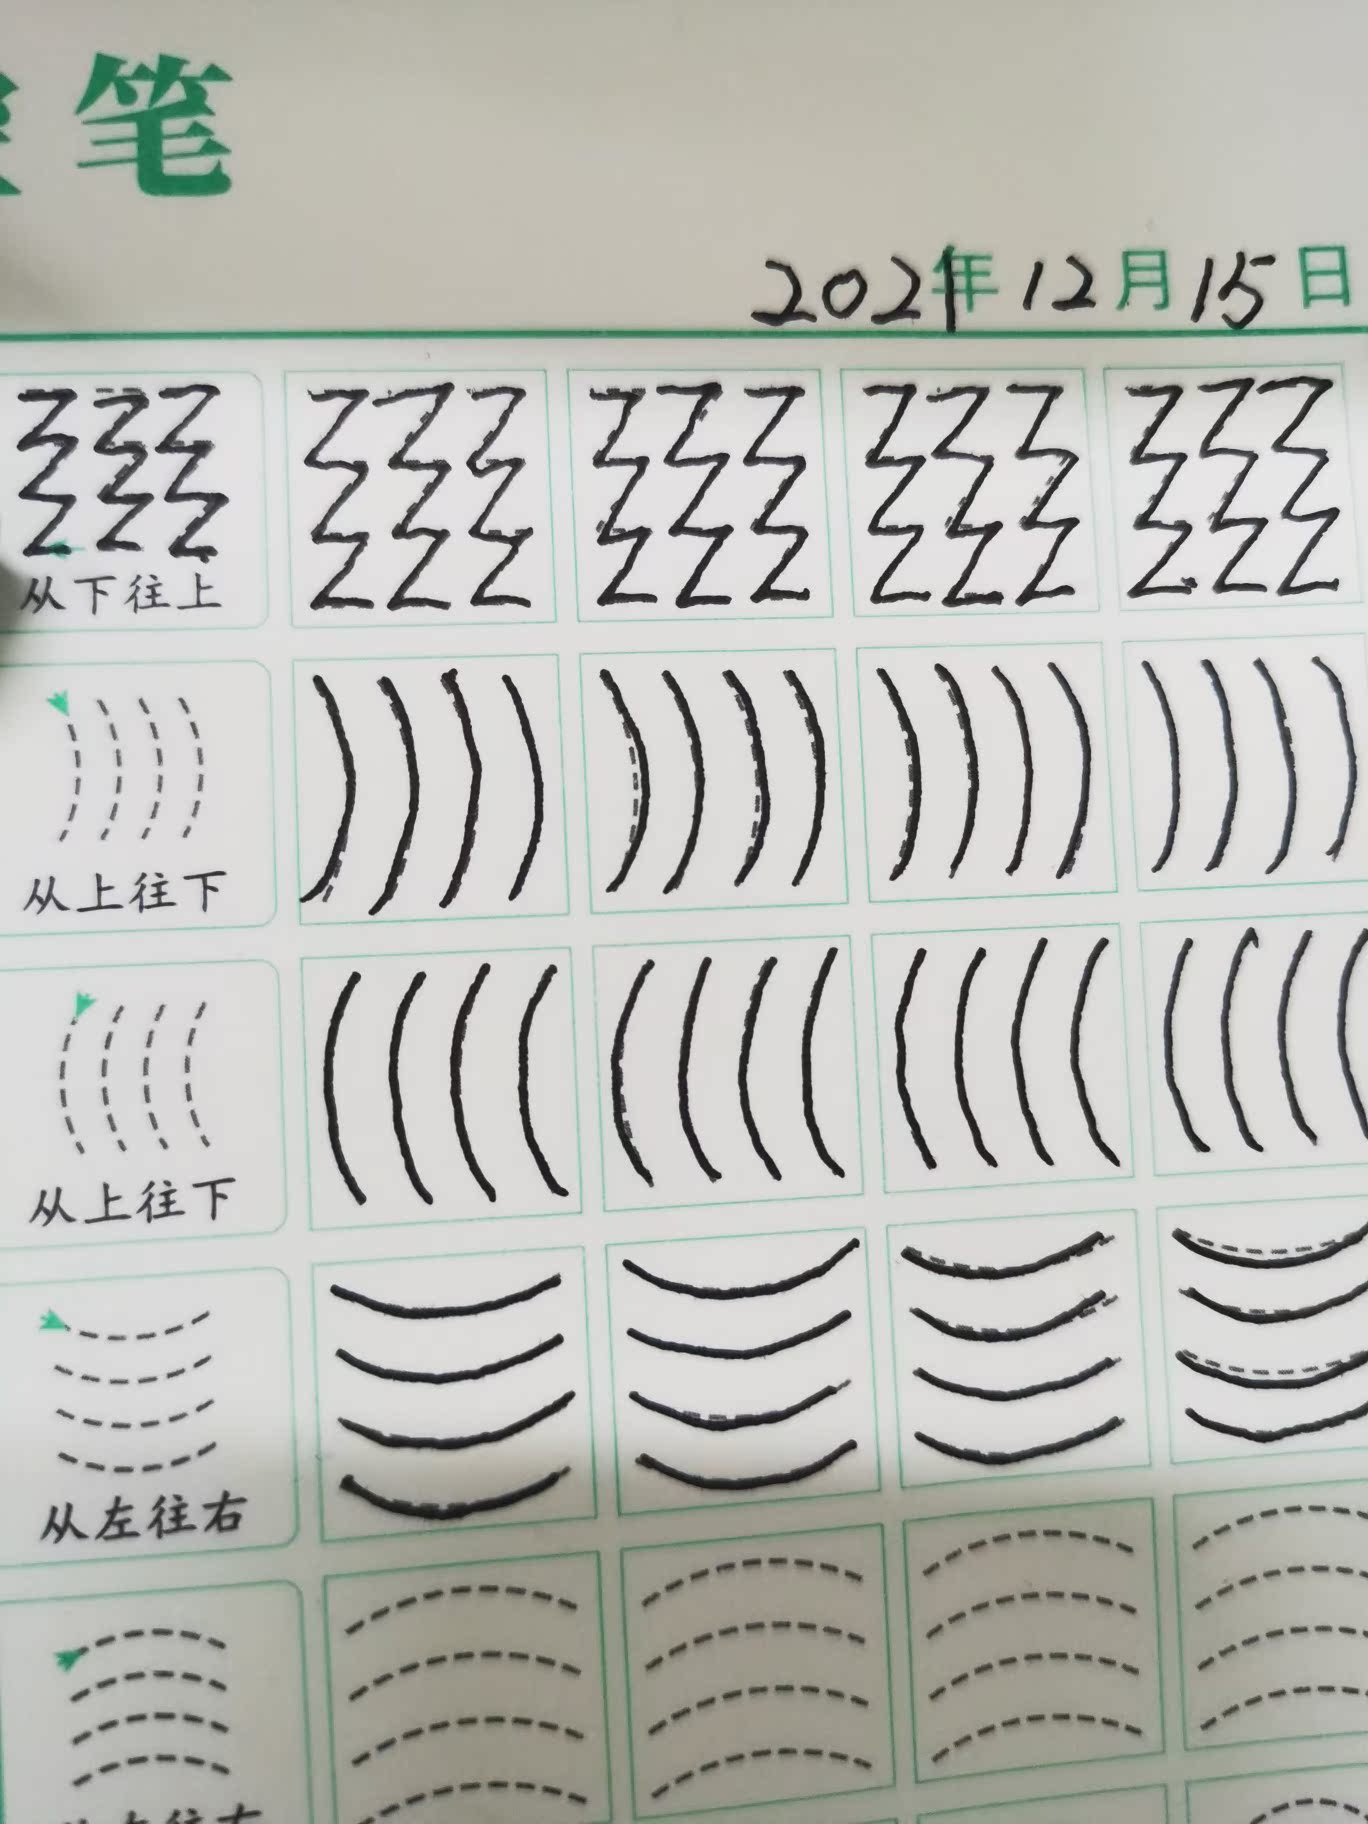 笔
2021年12月15日
从下往上
从上往下
从上往下
从左往右